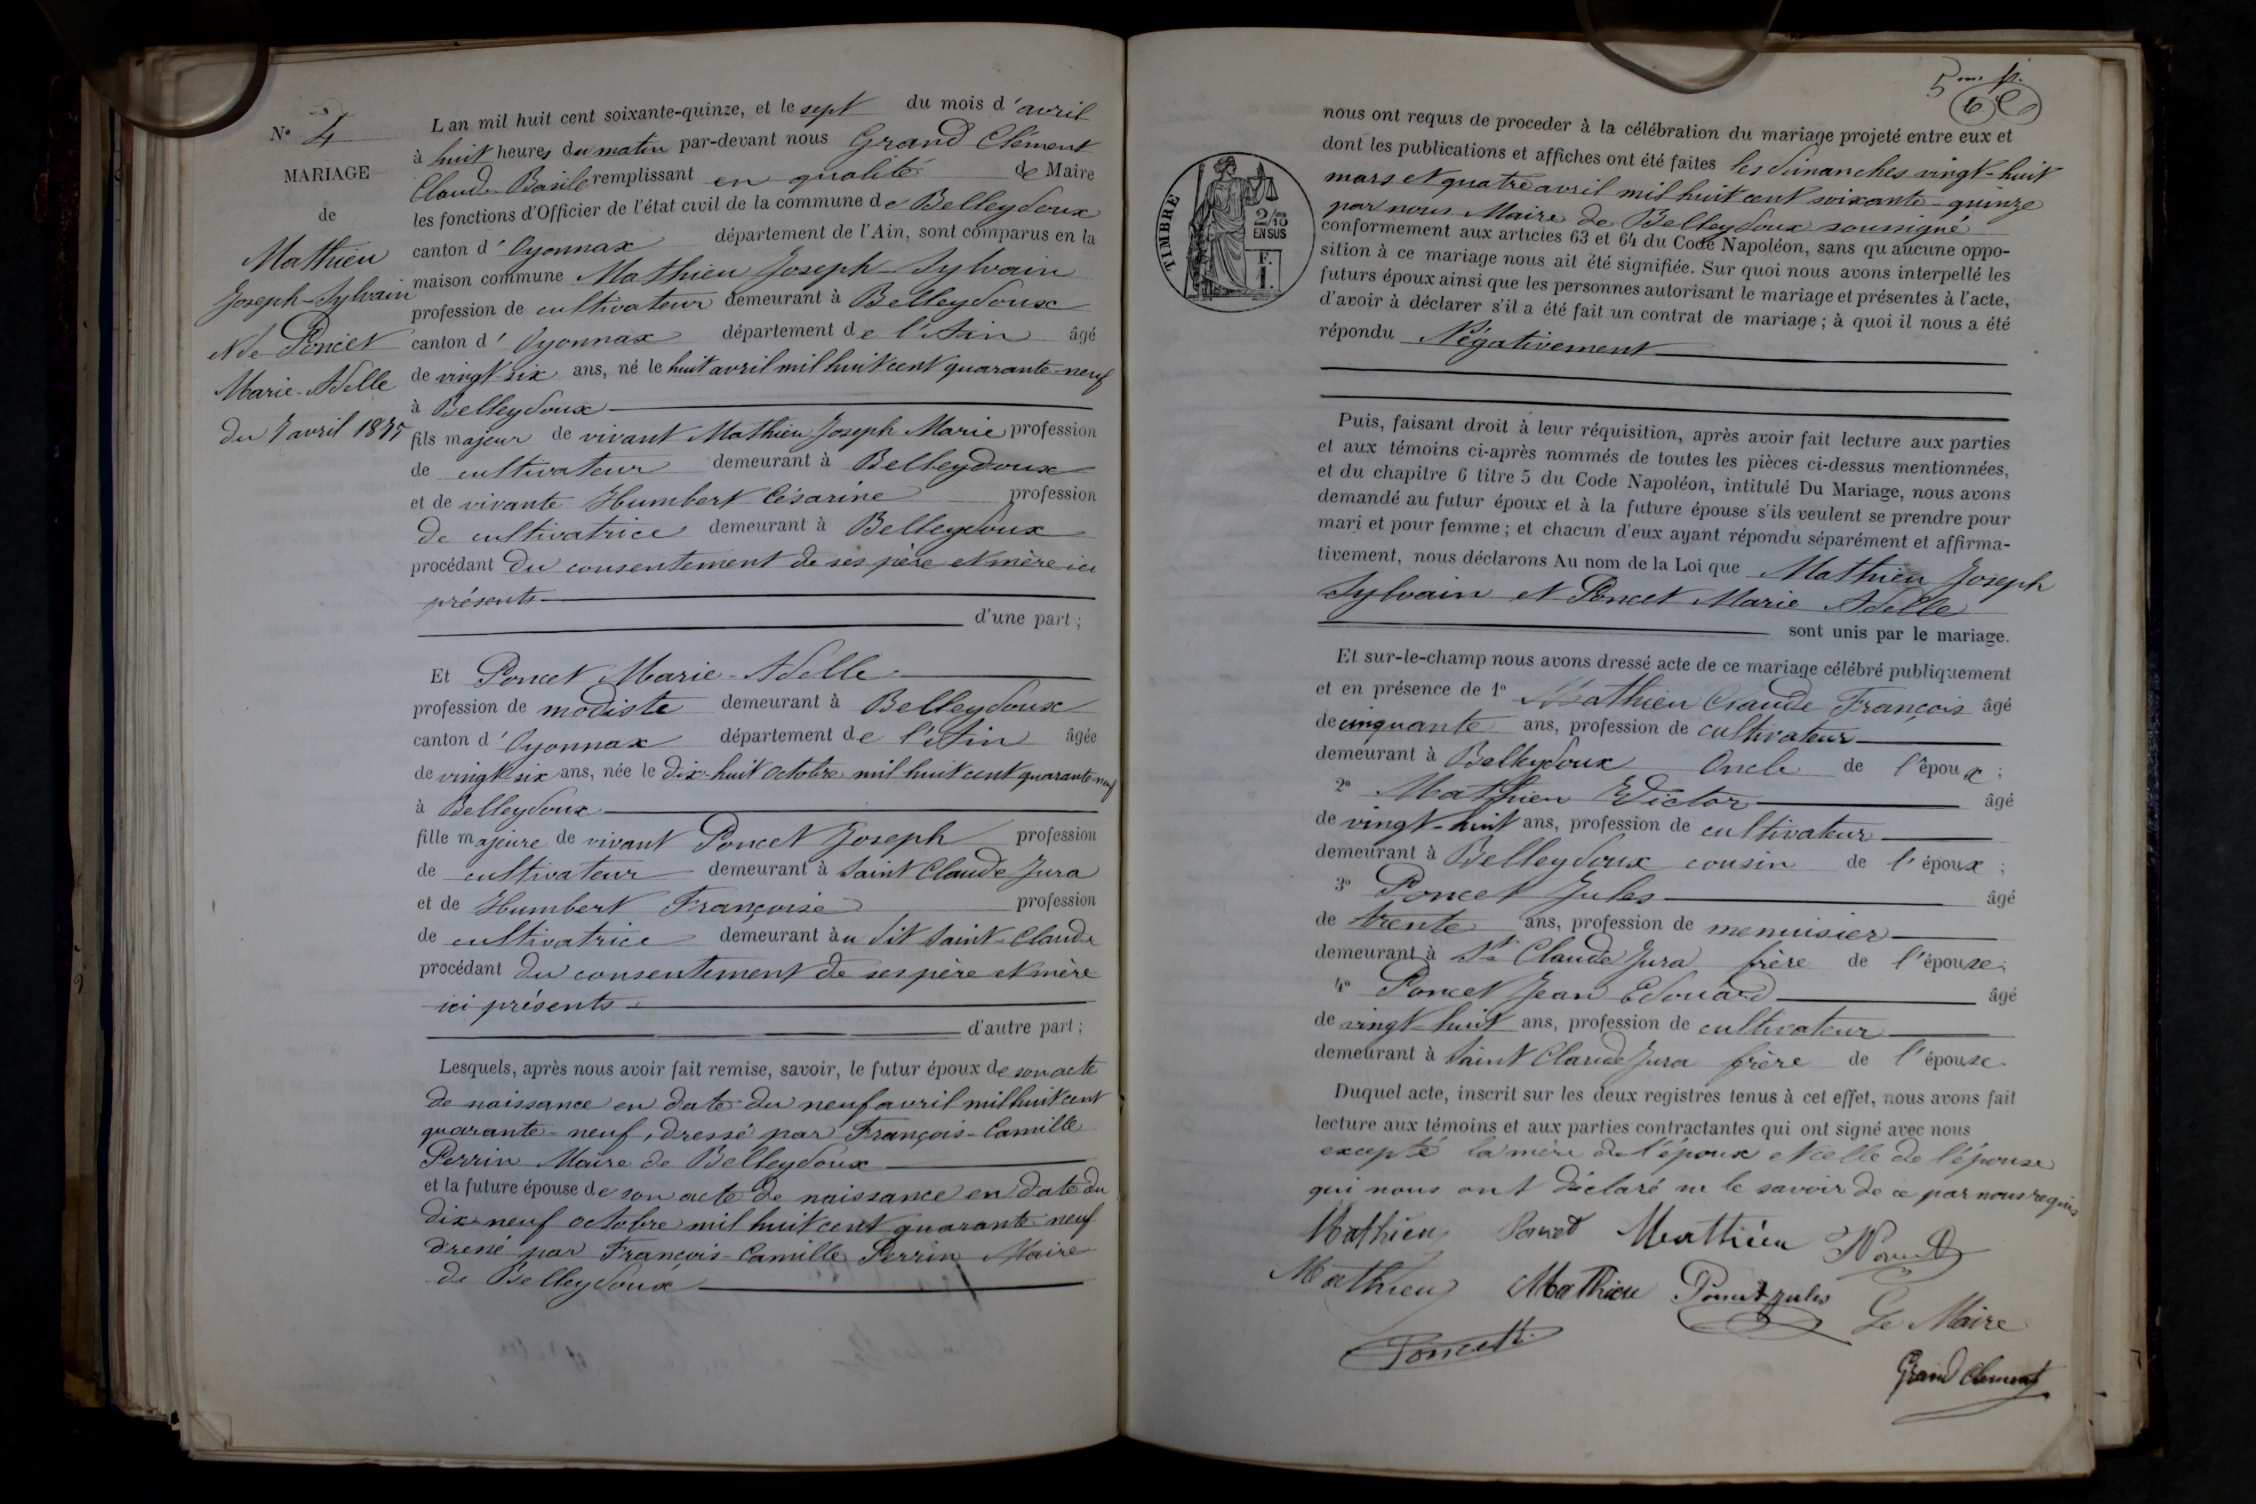 N° 4
MARIAGE
de
Mathieu
Joseph-Sylvain
et de Poncet
Marie-Adelle
du 7 avril 1875
L'an mil huit cent soixante-quinze, et le sept du mois d'avril
à huit heures du matin par-devant nous Grand Clément
Claude Basile remplissant en qualité de Maire
les fonctions d'Officier de l'état civil de la commune de Belleydoux
canton d'Oyonnax département de l'Ain, sont comparus en la
maison commune Mathieu Joseph Sylvain
profession de cultivateur demeurant à Belleydoux
canton d'Oyonnax département de l'Ain âgé
de vingt-six ans, né le huit avril mil huit cent quarante-neuf
à Belleydoux
fils majeur de vivant Mathieu Joseph Marie profession
de cultivateur demeurant à Belleydoux
et de vivante Humbert Césarine profession
de cultivatrice demeurant à Belleydoux
procédant du consentement de ses père et mère ici
présents
d'une part ;
Et Poncet Marie-Adelle
profession de modiste demeurant à Belleydoux
canton d'Oyonnax département de l'Ain âgée
de vingt-six ans, née le dix-huit octobre mil huit cent quarante-neuf
à Belleydoux
fille majeure de vivant Poncet Joseph profession
de cultivateur demeurant à Saint Claude Jura
et de Humbert Françoise profession
de cultivatrice demeurant au dit Saint-Claude
procédant du consentement de ses père et mère
ici présents
d'autre part ;
Lesquels, après nous avoir fait remise, savoir, le futur époux de son acte
de naissance en date du neuf avril mil huit cent
quarante-neuf, dressé par François-Camille
Perrin Maire de Belleydoux
et la future épouse de son acte de naissance en date du
dix neuf octobre mil huit cent quarante neuf
dressé par François-Camille Perrin Maire
de Belleydoux
5me f.
6
TIMBRE
2/10 EN SUS
F. 1.
nous ont requis de proceder à la célébration du mariage projeté entre eux et
dont les publications et affiches ont été faites les dimanches vingt-huit
mars et quatre avril mil huit cent soixante-quinze
par nous Maire de Belleydoux soussigné
conformement aux articles 63 et 64 du Code Napoléon, sans qu'aucune oppo-
sition à ce mariage nous ait été signifiée. Sur quoi nous avons interpellé les
futurs époux ainsi que les personnes autorisant le mariage et présentes à l'acte,
d'avoir à déclarer s'il a été fait un contrat de mariage ; à quoi il nous a été
répondu Négativement
Puis, faisant droit à leur réquisition, après avoir fait lecture aux parties
et aux témoins ci-après nommés de toutes les pièces ci-dessus mentionnées,
et du chapitre 6 titre 5 du Code Napoléon, intitulé Du Mariage, nous avons
demandé au futur époux et à la future épouse s'ils veulent se prendre pour
mari et pour femme ; et chacun d'eux ayant répondu séparément et affirma-
tivement, nous déclarons Au nom de la Loi que Mathieu Joseph
Sylvain et Poncet Marie Adelle
sont unis par le mariage.
Et sur-le-champ nous avons dressé acte de ce mariage célébré publiquement
et en présence de 1° Mathieu Claude François âgé
de cinquante ans, profession de cultivateur
demeurant à Belleydoux Oncle de l'époux ;
2° Mathieu Victor âgé
de vingt-huit ans, profession de cultivateur
demeurant à Belleydoux cousin de l'époux ;
3° Poncet Jules âgé
de trente ans, profession de menuisier
demeurant à St Claude Jura frère de l'épouse ;
4° Poncet Jean Edouard âgé
de vingt-huit ans, profession de cultivateur
demeurant à Saint Claude Jura frère de l'épouse.
Duquel acte, inscrit sur les deux registres tenus à cet effet, nous avons fait
lecture aux témoins et aux parties contractantes qui ont signé avec nous
excepté la mère de l'époux et celle de l'épouse
qui nous ont déclaré ne le savoir de ce par nous requis
Mathieu Poncet Matthieu
Mathieu Mathieu Poncet jules Le Maire
Poncet
Grand Clément